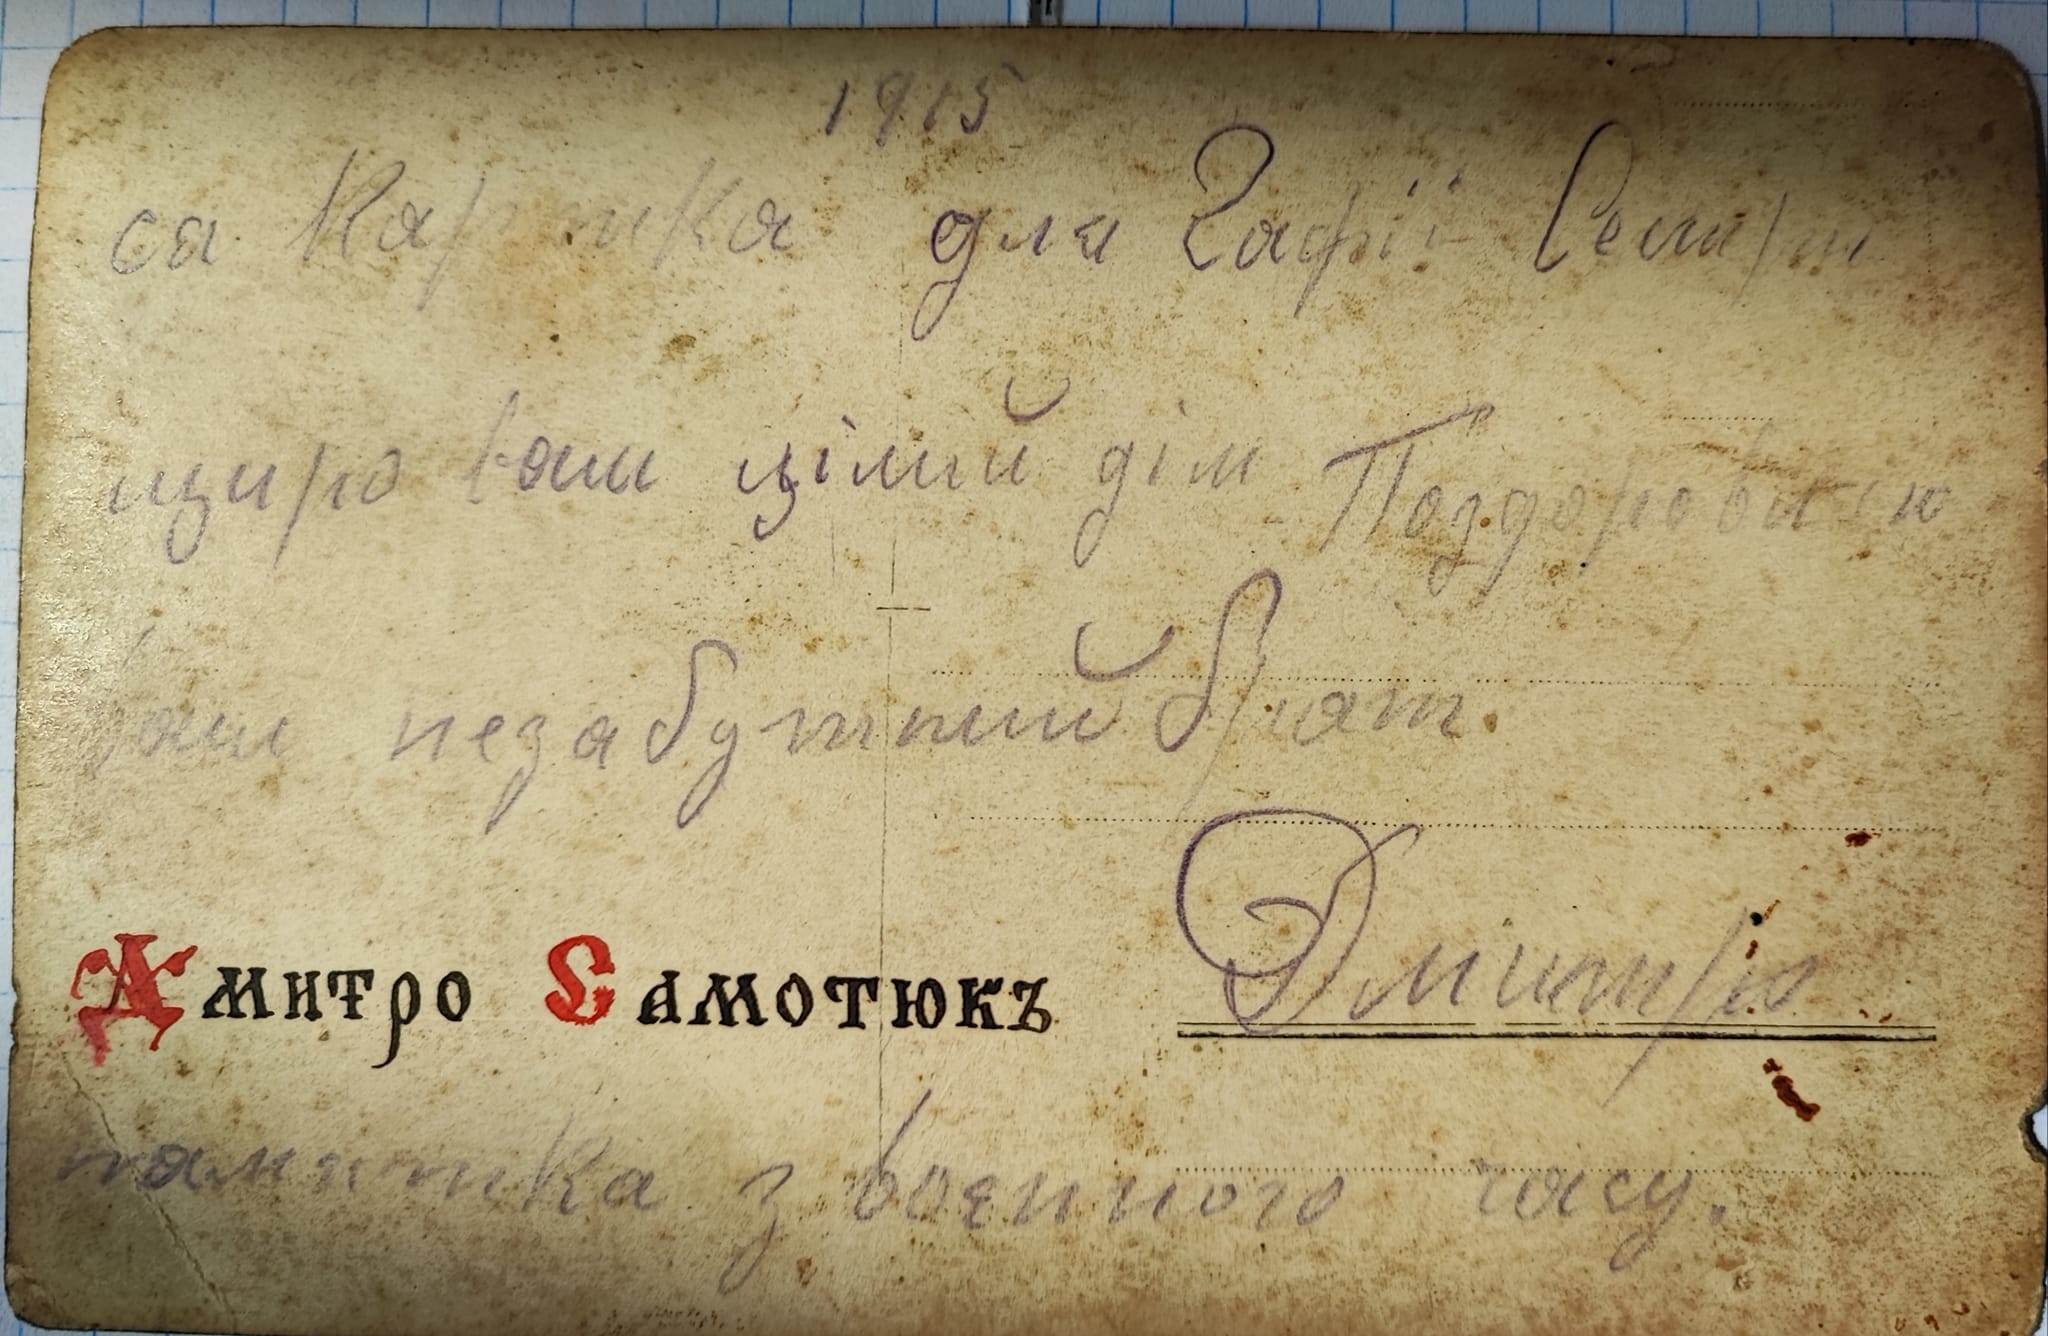 1915
са Картка для Гафії Сестри
щиро ваш цілий дім Поздоровляю
ваш незабутний брат.
Дмитро Самотюкъ Дмитро
памятка з воєнного часу.